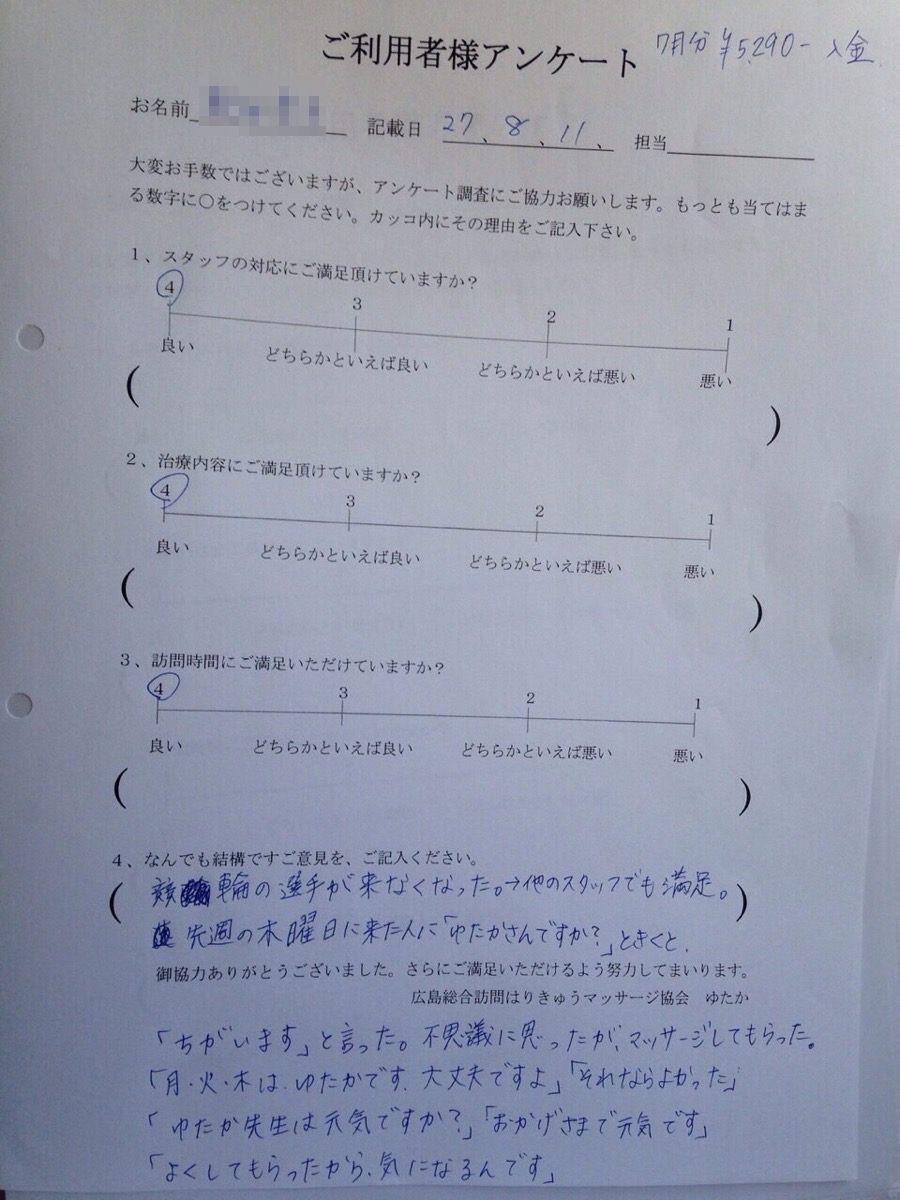 ご利用者様アンケート
7月分 ¥5,290- 入金
お名前 記載日 27、8、11、 担当
大変お手数ではございますが、アンケート調査にご協力お願いします。もっとも当てはま
る数字に○をつけてください。カッコ内にその理由をご記入下さい。
1、スタッフの対応にご満足頂けていますか?
4 3 2 1
良い どちらかといえば良い どちらかといえば悪い 悪い
( )
2、治療内容にご満足頂けていますか?
4 3 2 1
良い どちらかといえば良い どちらかといえば悪い 悪い
( )
3、訪問時間にご満足いただけていますか?
4 3 2 1
良い どちらかといえば良い どちらかといえば悪い 悪い
( )
4、なんでも結構ですご意見を、ご記入ください。
(競輪の選手が来なくなった。→他のスタッフでも満足。)
先週の木曜日に来た人に「ゆたかさんですか?」ときくと、
御協力ありがとうございました。さらにご満足いただけるよう努力してまいります。
広島総合訪問はりきゅうマッサージ協会 ゆたか
「ちがいます」と言った。不思議に思ったが、マッサージしてもらった。
「月・火・木は、ゆたかです、大丈夫ですよ」「それならよかった」
「ゆたか先生は元気ですか?」「おかげさまで元気です」
「よくしてもらったから、気になるんです」